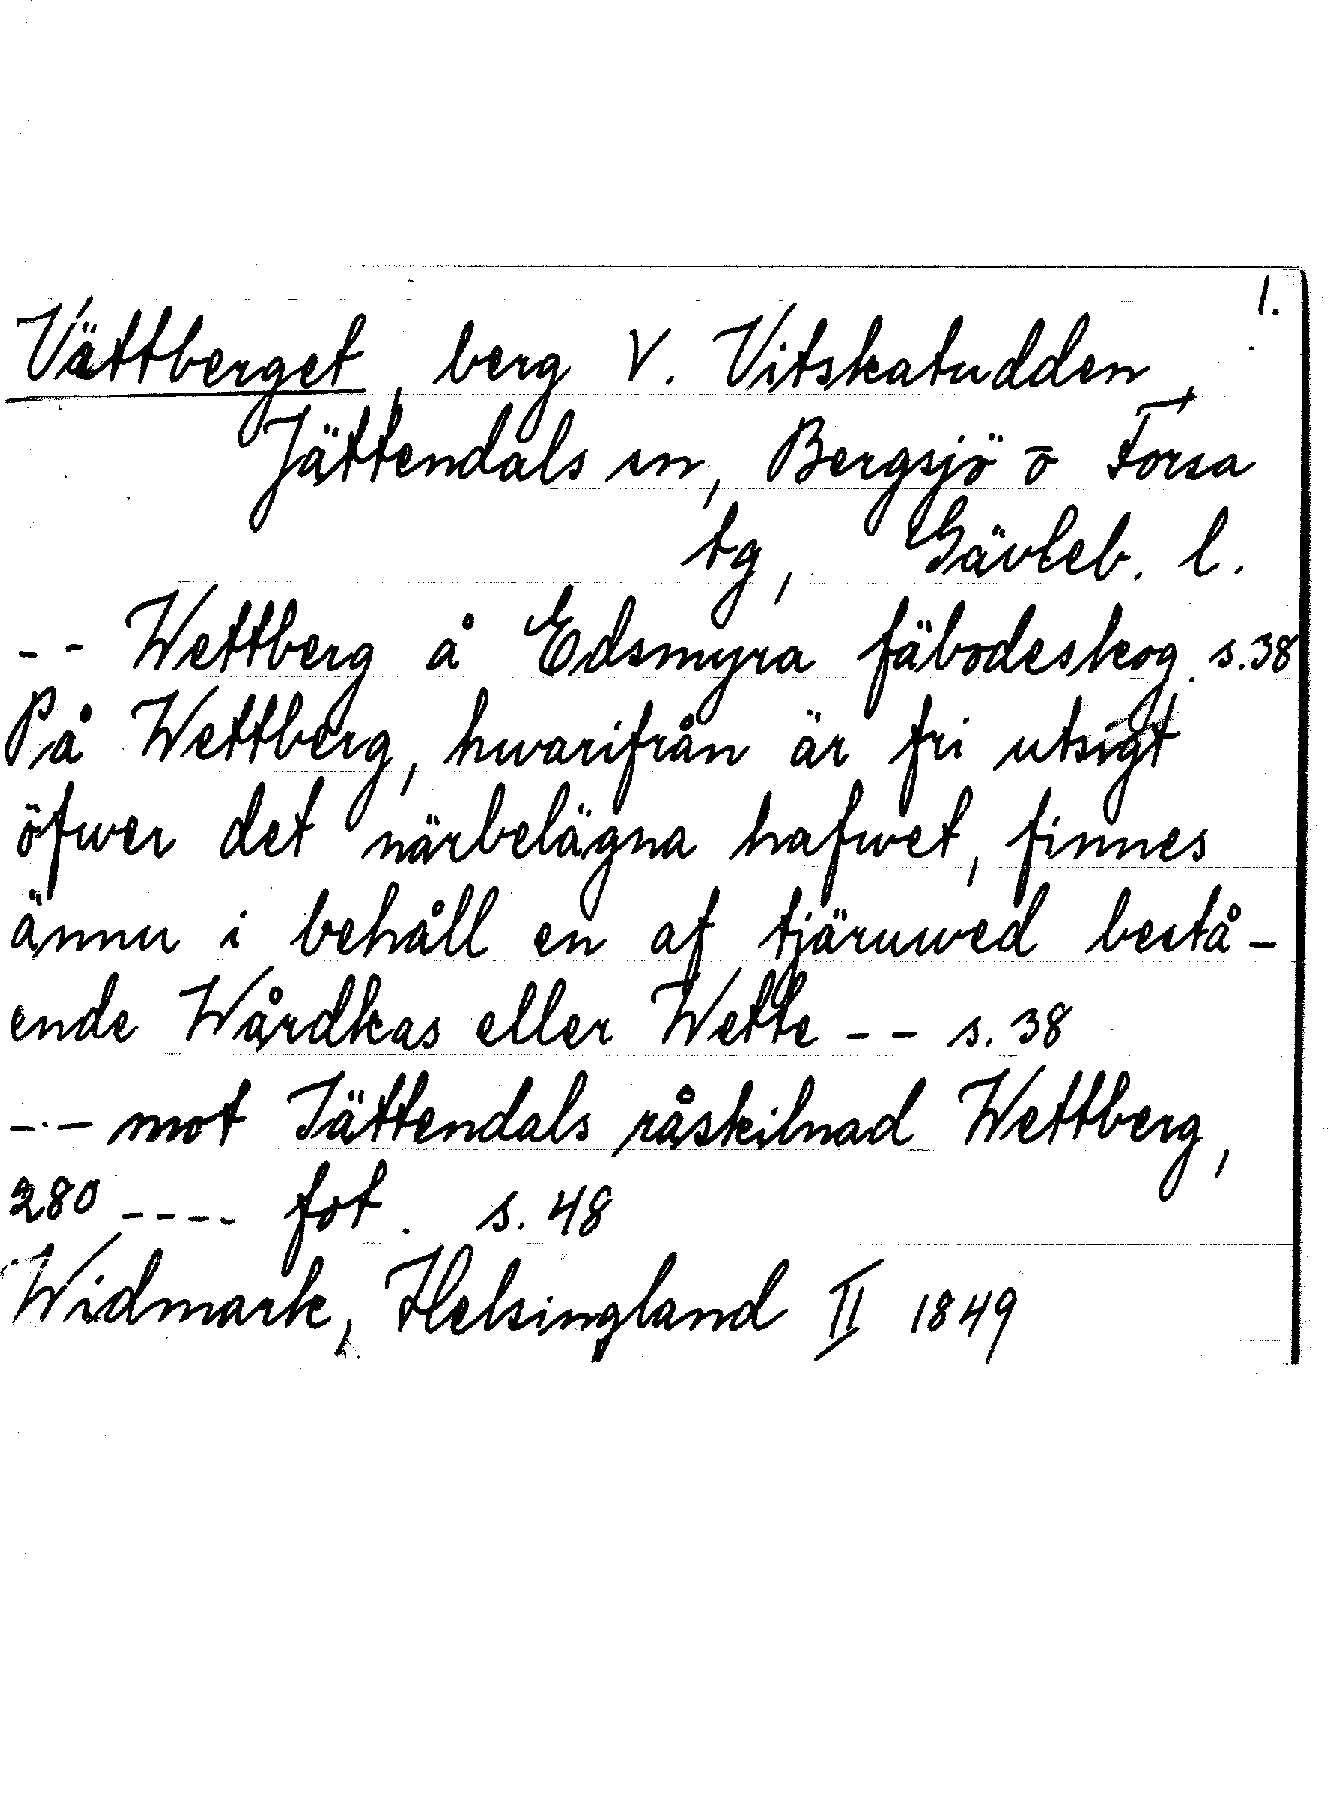 1.
Vättberget, berg V. Vitskatudden,
Jättendals sn, Bergsjö o Forsa
tg, Gävleb. l.
-- Wettberg å Edsmyra fäbodeskog. s.38
På Wettberg, hwarifrån är fri utsigt
öfwer det närbelägna hafwet, finnes
ännu i behåll en af tjäruwed bestå-
ende Wårdkas eller Wette -- s. 38
-.- mot Jättendals råskilnad Wettberg,
280 ---- fot. s. 48
Widmark, Helsingland II 1849